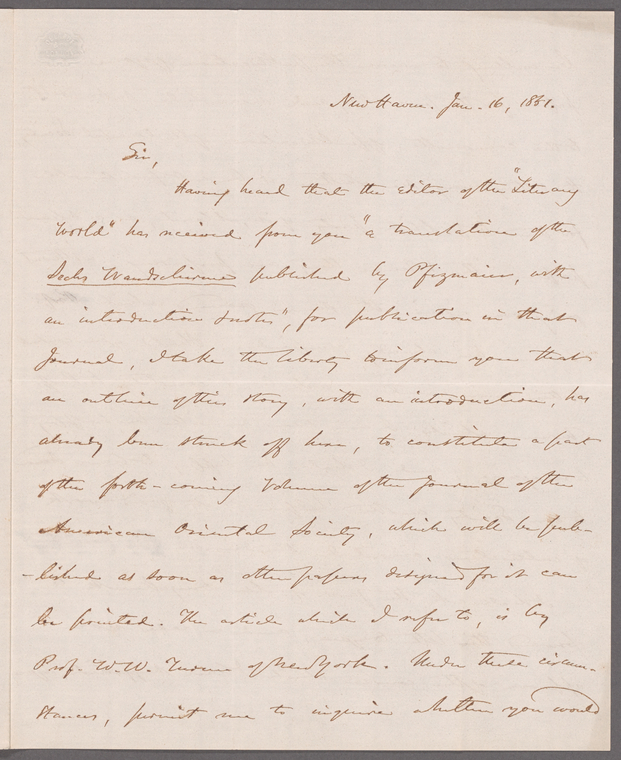 New Haven. Jan. 16, 1851.
Sir,
Having heard that the editor of the "Literary
World" has received from you "a translation of the
Sechs Wandschirme published by Pfizmaier, with
an introduction & notes", for publication in that
Journal, I take the liberty to inform you that
an outline of this story, with an introduction, has
already been struck off here, to constitute a part
of the forth-coming Volume of the Journal of the
American Oriental Society, which will be pub-
-lished as soon as other papers designed for it can
be printed. The article which I refer to, is by
Prof. W. W. Turner of New York. Under these circum-
stances, permit me to inquire whether you would